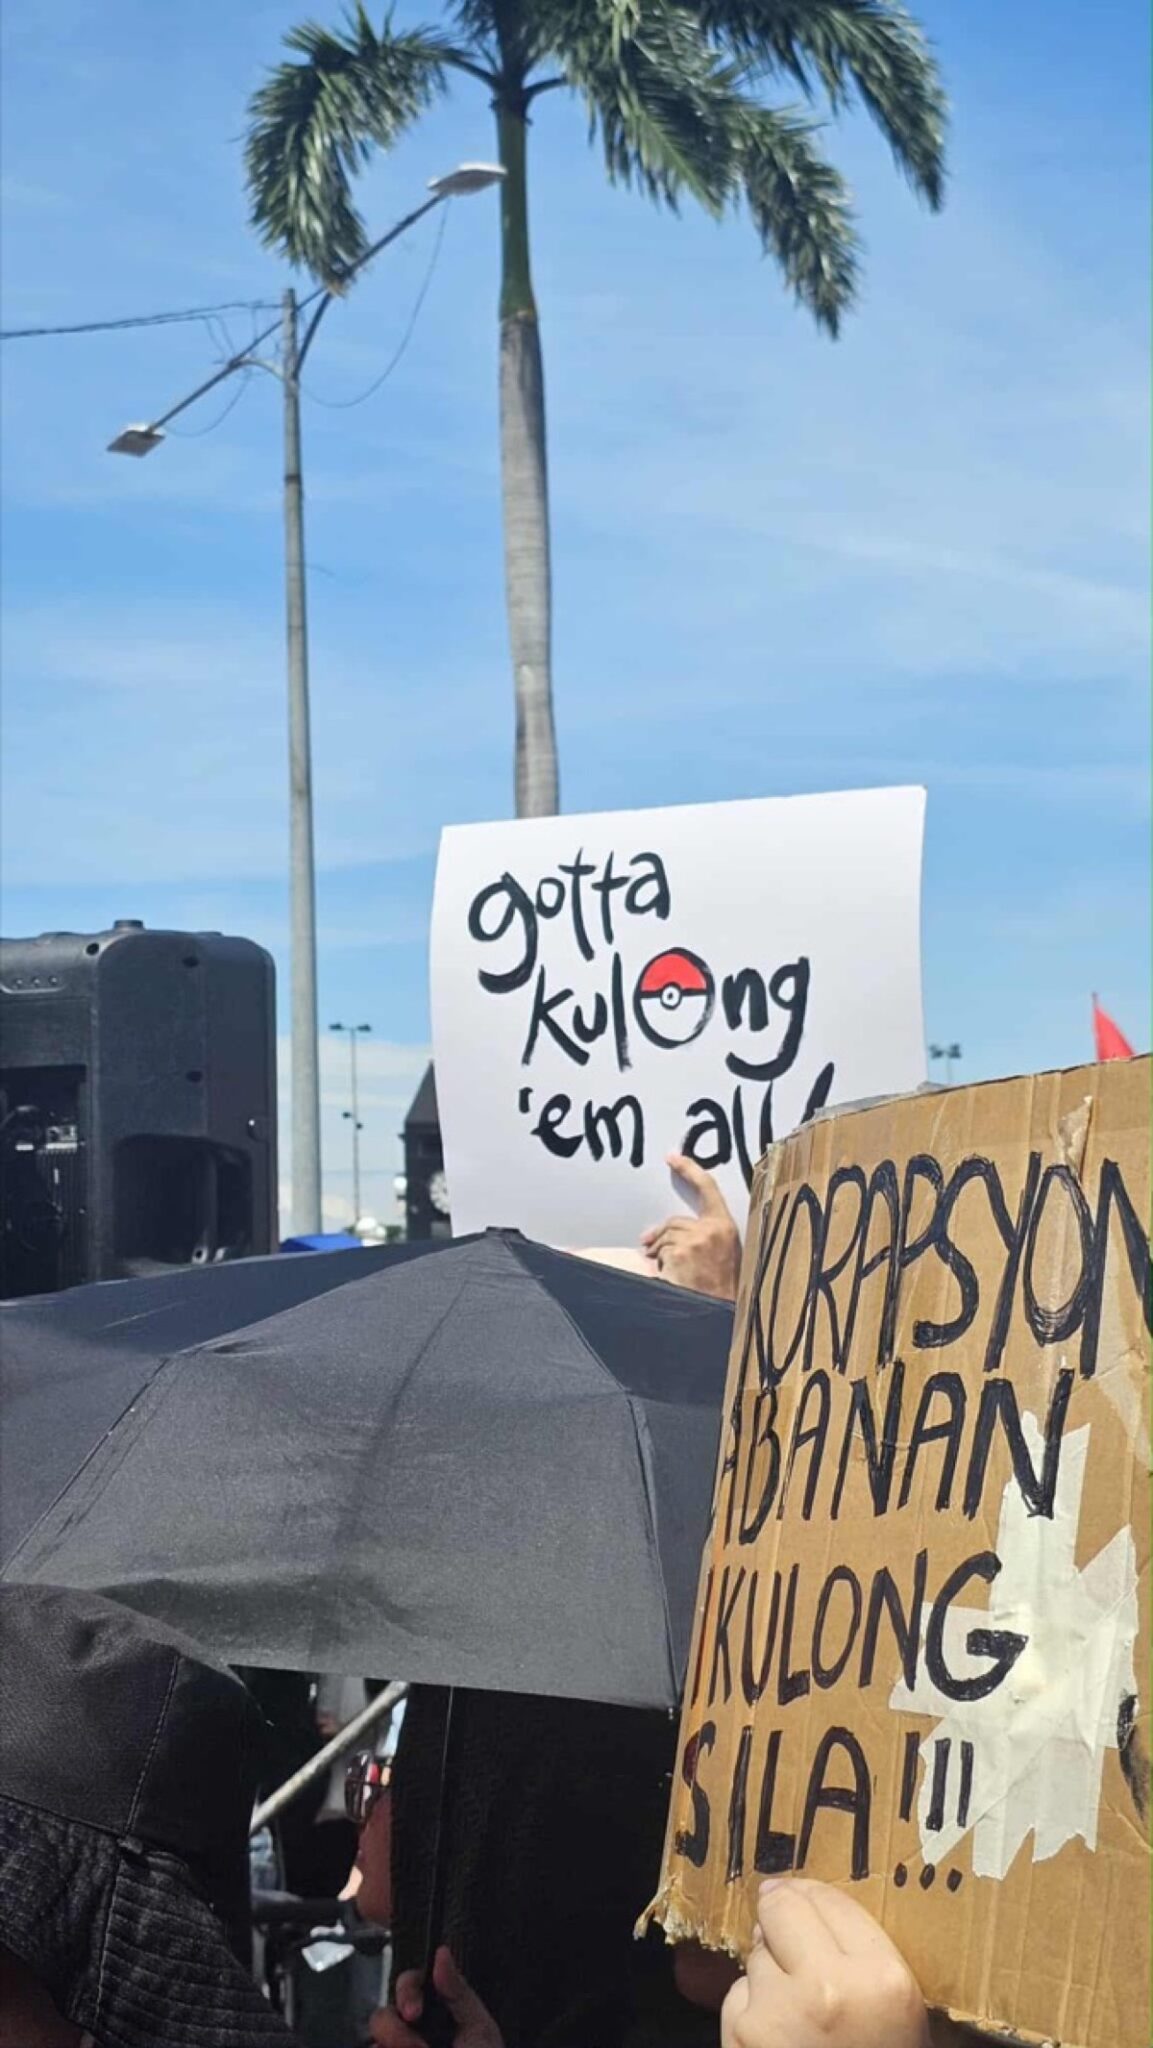 gotta
kulong
'em all!
KORAPSYON
ABANAN
IKULONG
SILA!!!